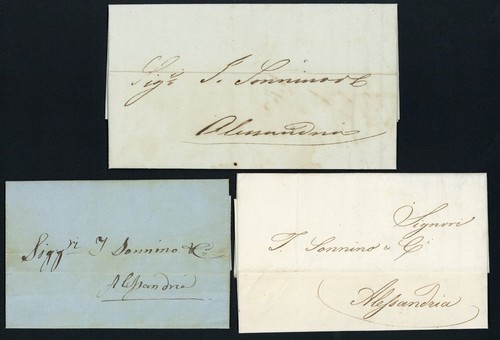 Sigri J. Sonnino & C.
Alessandria
Siggri J Sonnino & Co
Alessandria
Signori
J. Sonnino & Ci
Alessandria